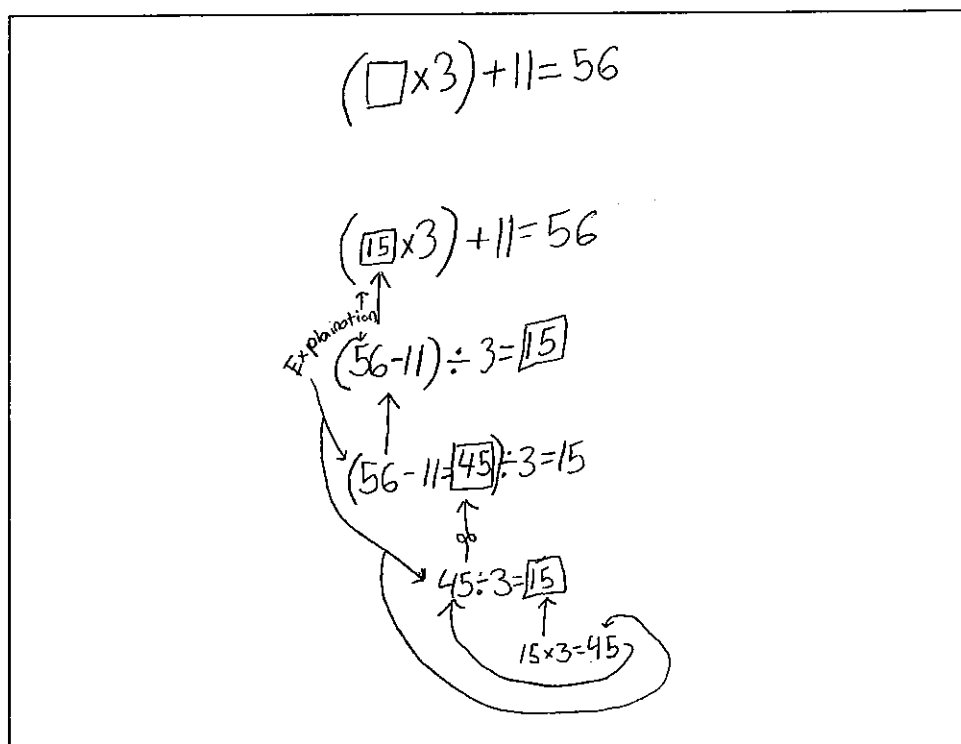 (□×3)+11=56
(15×3)+11=56
Explaination
(56-11)÷3=15
(56-11=45)÷3=15
45÷3=15
15×3=45